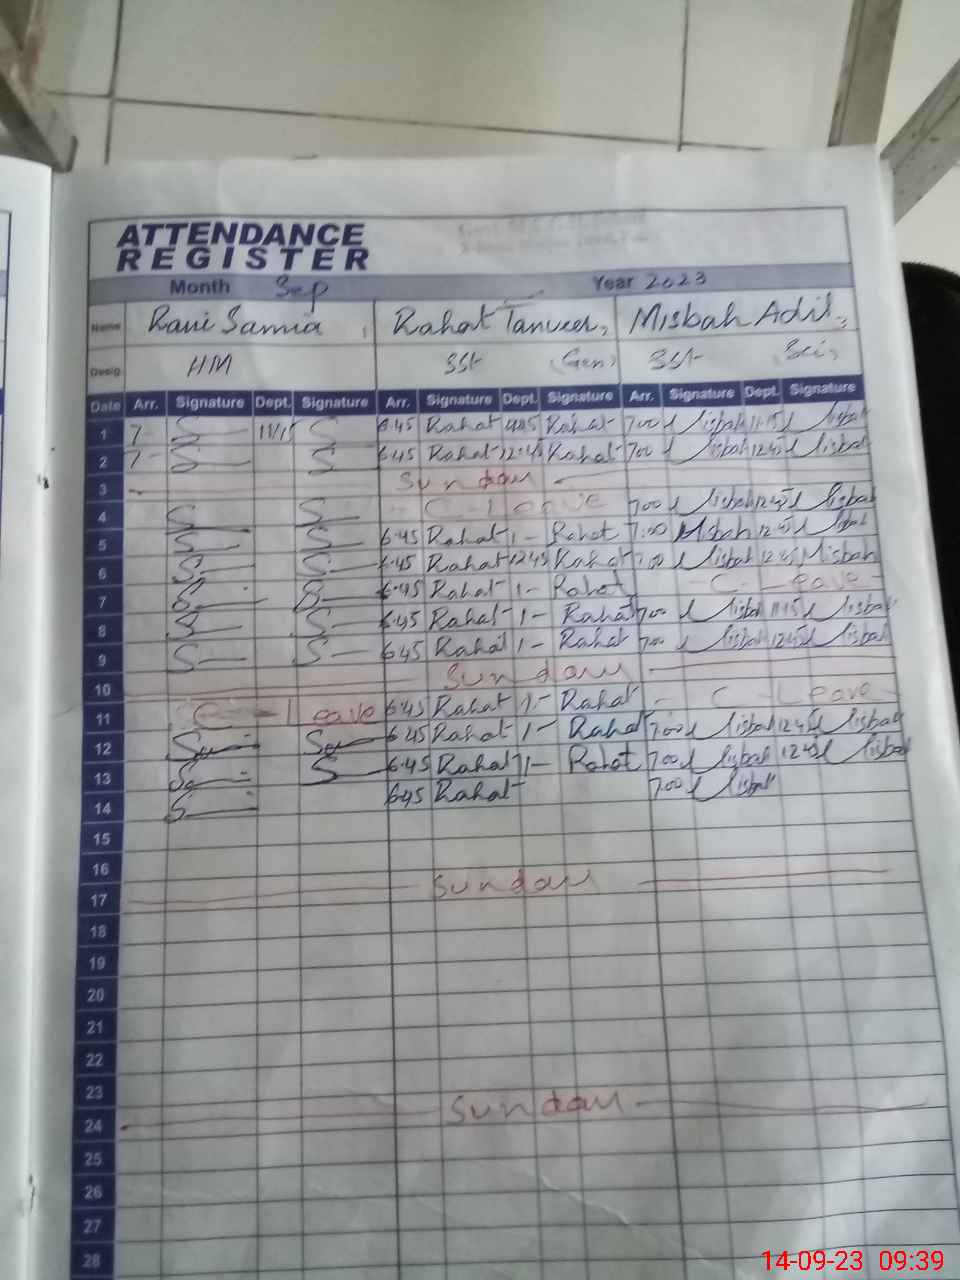 ATTENDANCE
REGISTER
Month Sep Year 2023
Name Rani Samia, Rahat Tanveer, Misbah Adil,
Desig. HM SSt (Gen) SSt (Sci)
Date Arr. Signature Dept. Signature Arr. Signature Dept. Signature Arr. Signature Dept. Signature
1 7- S 11/15 S 6:45 Rahat Rahat 7:00 Misbah 11:15 Misbah
2 7- S S 6:45 Rahat 12:45 Rahat 7:00 Misbah 12:45 Misbah
3 Sunday
4 S S C-Leave 7:00 Misbah 12:45 Misbah
5 S S 6:45 Rahat 1- Rahat 7:00 Misbah 12:45 Misbah
6 S S 6:45 Rahat 12:45 Rahat 7:00 Misbah 12:45 Misbah
7 S S 6:45 Rahat 1- Rahat C-Leave
8 S S 6:45 Rahat 1- Rahat 7:00 Misbah 11:15 Misbah
9 S S 6:45 Rahat 1- Rahat 7:00 Misbah 12:45 Misbah
10 Sunday
11 C-Leave 6:45 Rahat 1- Rahat C-Leave
12 6:45 Rahat 1- Rahat 7:00 Misbah 12:45 Misbah
13 S 6:45 Rahat 1- Rahat 7:00 Misbah 12:45 Misbah
14 S 6:45 Rahat 7:00 Misbah
15
16
17 Sunday
18
19
20
21
22
23
24 Sunday
25
26
27
28
14-09-23 09:39